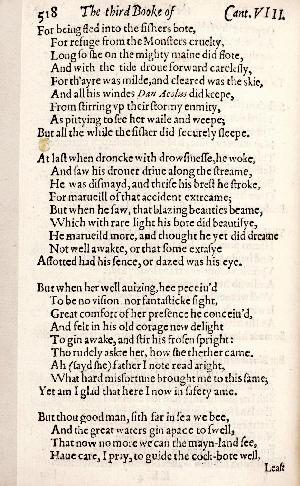 518 The third Booke of Cant. VIII.
For being fled into the fishers bote,
For refuge from the Monsters cruelty,
Long so she on the mighty maine did flote,
And with the tide droue forward carelesly,
For th'ayre was milde, and cleared was the skie,
And all his windes Dan Aeolus did keepe,
From stirring vp their stormy enmity,
As pittying to see her waile and weepe;
But all the while the fisher did securely sleepe.
At last when droncke with drowsinesse, he woke,
And saw his drouer driue along the streame,
He was dismayd, and thrise his brest he stroke,
For marueill of that accident extreame;
But when he saw, that blazing beauties beame,
Which with rare light his bote did beautifye,
He marueild more, and thought he yet did dreame
Not well awakte, or that some extasye
Assotted had his sence, or dazed was his eye.
But when her well auizing, hee perceiu'd
To be no vision nor fantasticke sight,
Great comfort of her presence he conceiu'd,
And felt in his old corage new delight
To gin awake, and stir his frosen spright:
Tho rudely askte her, how she thether came.
Ah (sayd she) father I note read aright,
What hard misfortune brought me to this same;
Yet am I glad that here I now in safety ame.
But thou good man, sith far in sea we bee,
And the great waters gin apace to swell,
That now no more we can the mayn-land see,
Haue care, I pray, to guide the cock-bote well,
Least